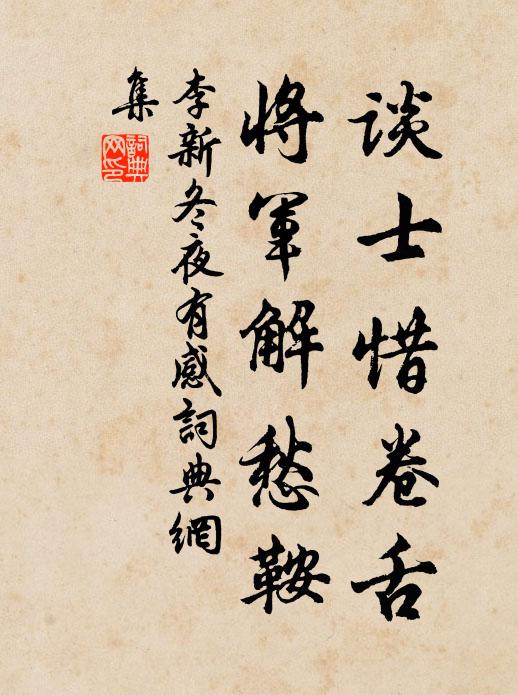 谈士惜卷舌
将军解愁鞍
李新冬夜有感詞典網
集
詞典
网印